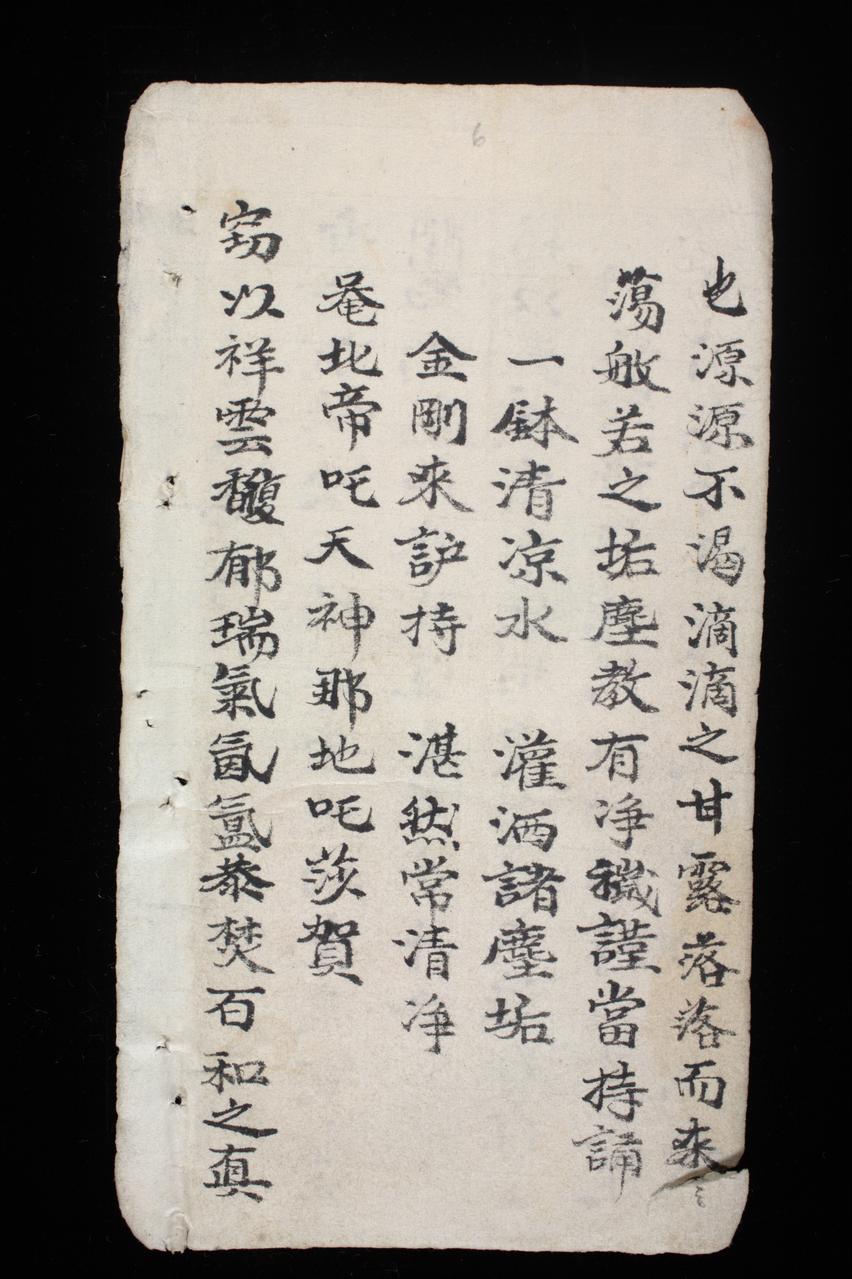 也源源不渴滴滴之甘露落落而來
蕩敏若之垢塵教有净穢謹當持誦
一鉢清凉水 灌洒諸塵垢
金剛來護持 湛然常清净
菴北帝吒天神那地吒莎賀
窃以祥雲馥郁瑞氣氤氳恭焚百和之真
6